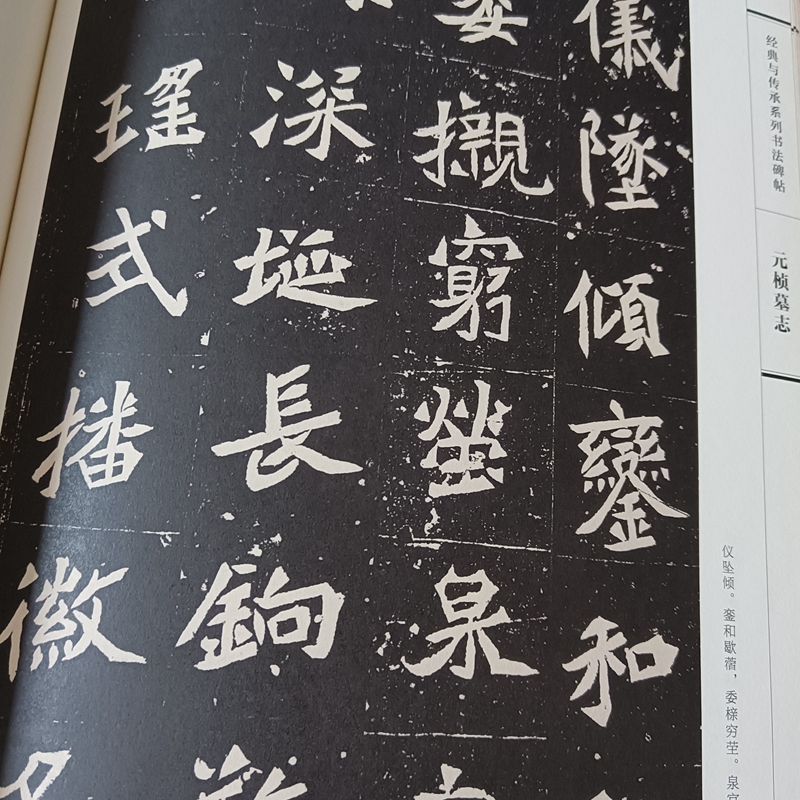 儀墜傾鑾和
委櫬窮塋泉
深埏長鉤
瑤式播徽
经典与传承系列书法碑帖
元桢墓志
仪坠倾。銮和歇蔼，委榇穷茔。泉宫